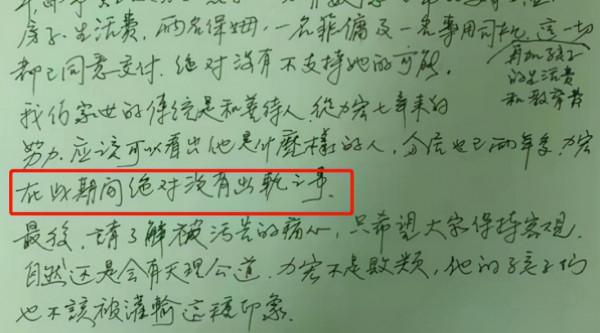 房子.生活費,兩名保姆,一名菲傭及一名專用司机,這一切
再加孩子
都已同意交付.绝对没有不支持她的可能.
的生活费
和教育费
我们家世的傳統是和善待人.從力宏七年來的
努力.应該可以看出他是什麼樣的人,分居也已兩年多,力宏
在此期间绝对没有出軌之事.
最後,請了解被污告的痛心,只希望大家保持客观.
自然还是会有天理公道.力宏不是敗類,他的孩子们
也不該被灌輸這種印象.